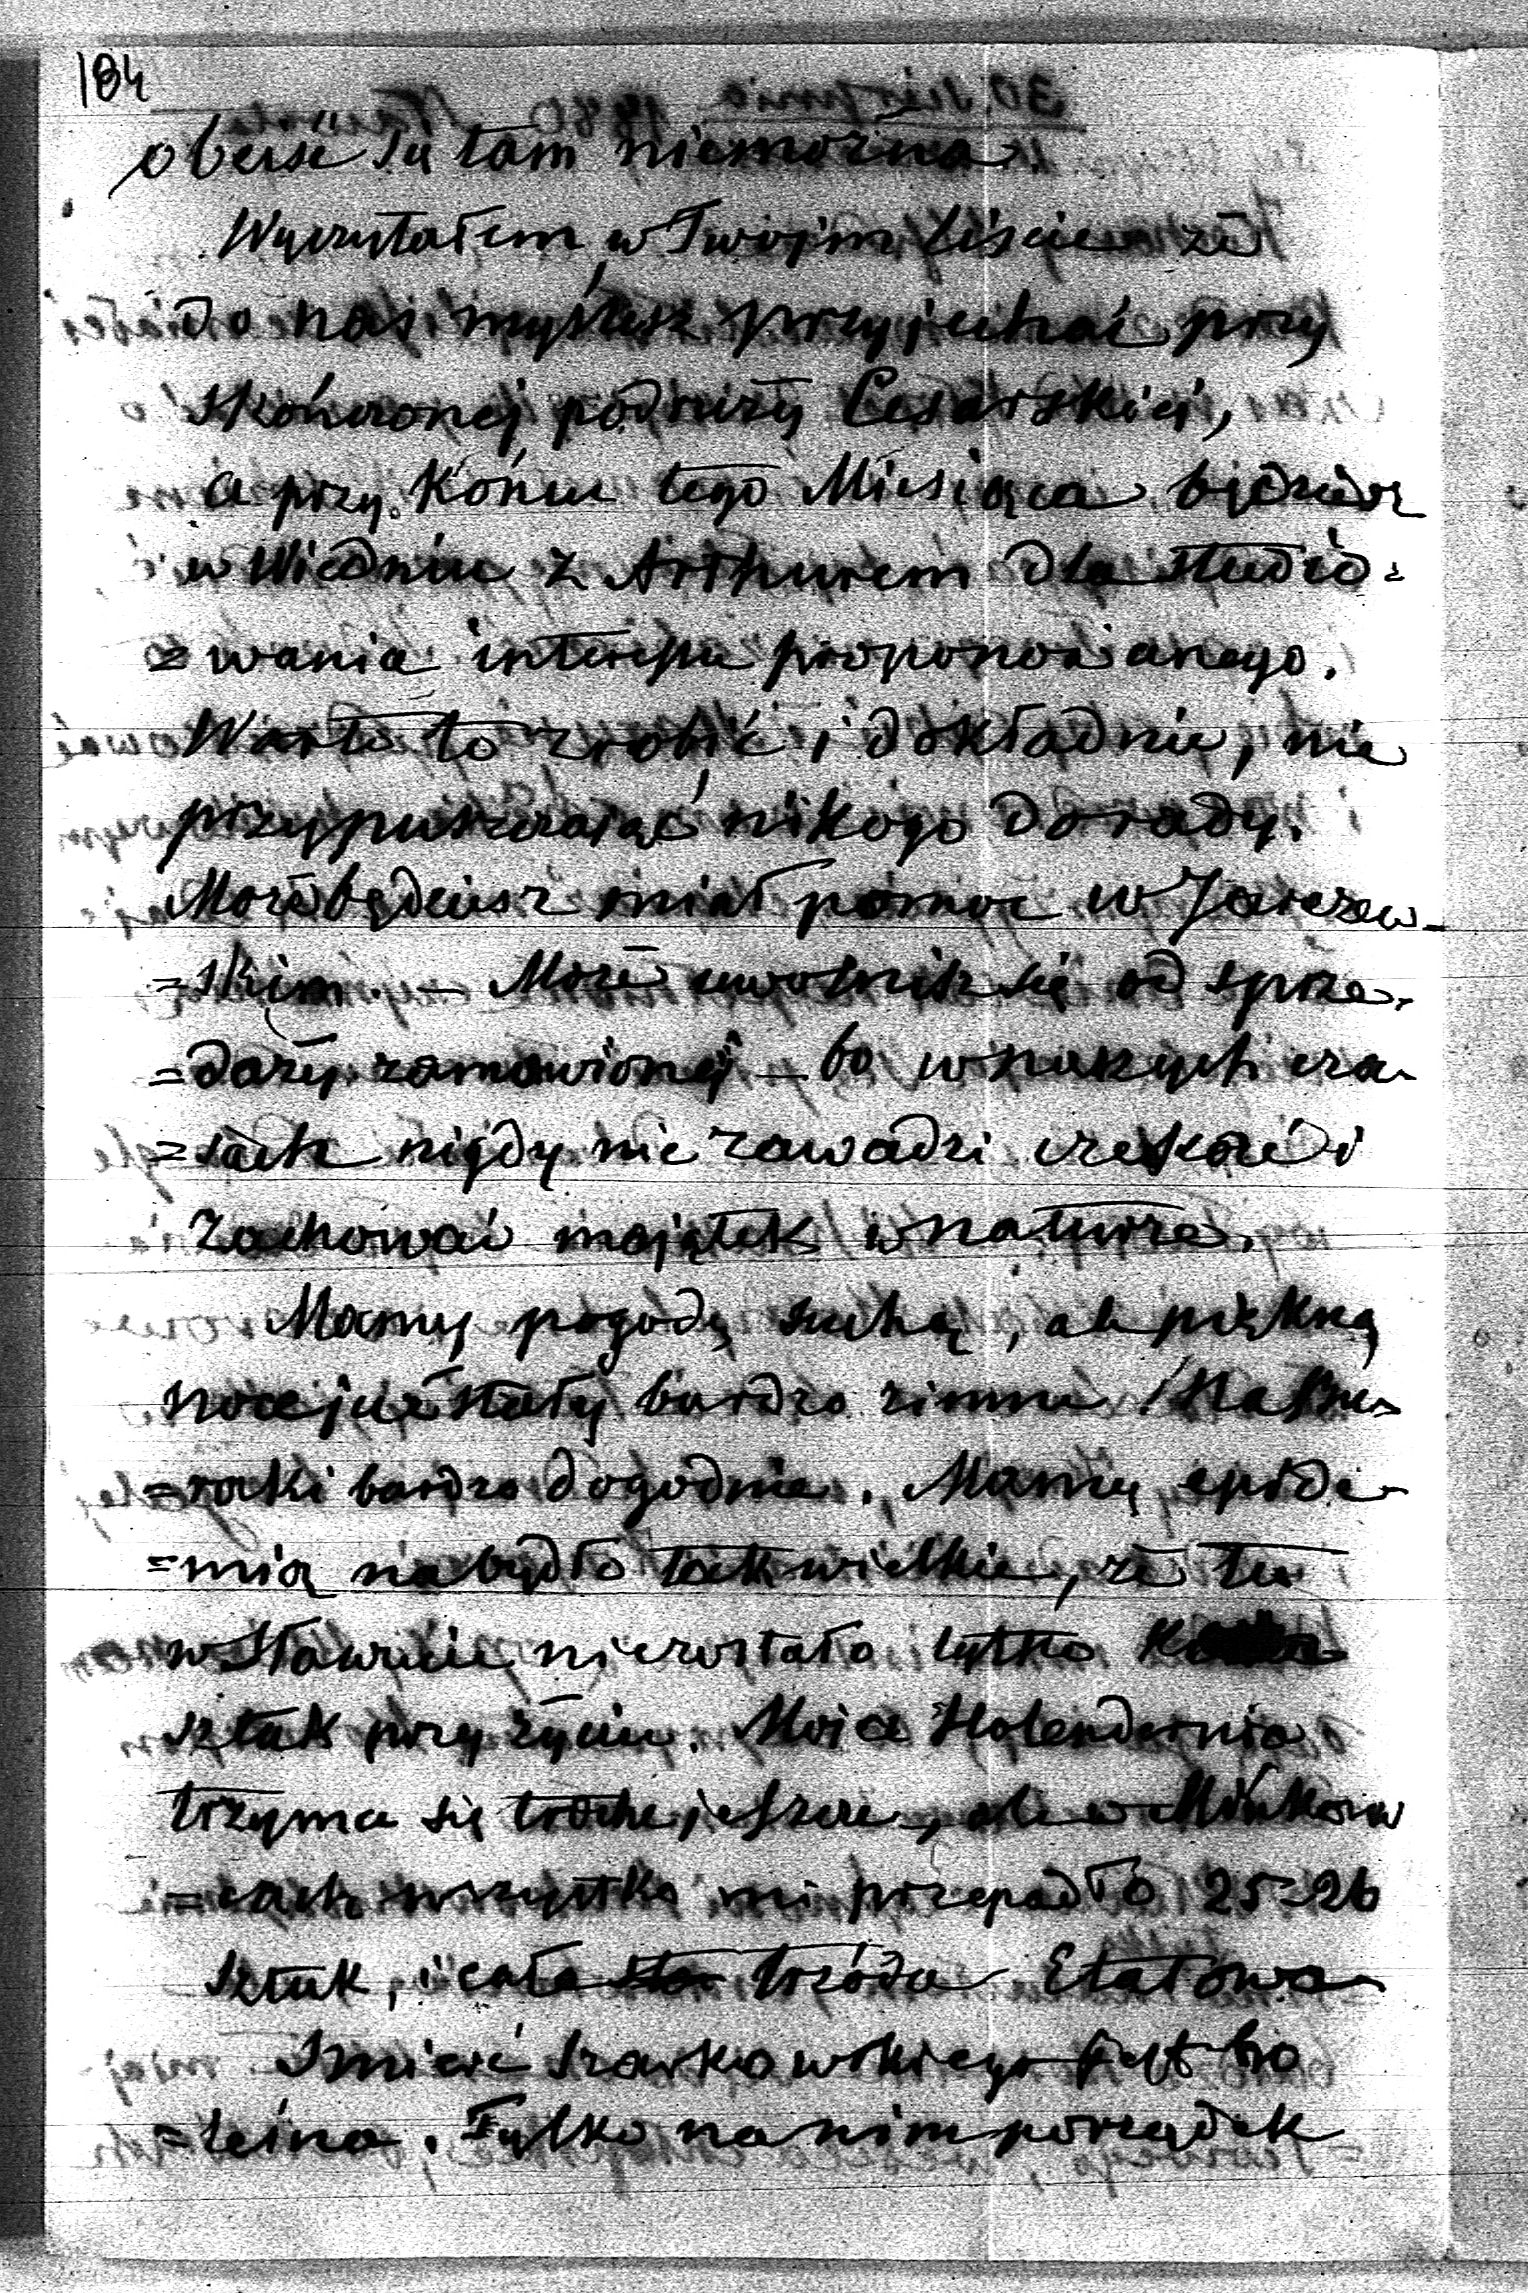 184
obejść się tam niemożna.
Wyczytałem w Twojim liście że
do nas myślisz przyjechać przy
skończonej podruży Cesarskiej,
a przy końcu tego Miesiąca będziesz
w Wiedniu z Arthurem dla studio=
=wania interesu proponowanego.
Warto to zrobić i dokładnie, nie
przypuszczając nikogo do rady.
Może będziesz miał pomoc w Jarczew-
=skim. – Może uwolnisz się od sprze-
=daży zamowionej – bo w naszych cza-
=sach nigdy nie zawadzi czekać i
zachować majątek w naturze.
Mamy pogodę suchą, ale piękną
noce już stały bardzo zimne! Na Bu-
=raki bardzo dogodnie. Mamy epide-
=mią na bydło tak wielkie, że tu
w Sławucie niezostało tylko
sztuk przy życiu. Moja Holendernia
trzyma się troche jeszcze, ale w
=cach wszystko mi przepadło 25=26
sztuk, i cała trzóda Etatowa
Smierć Szarkowskiego jest bo
=leśna. Tylko na nim porządek